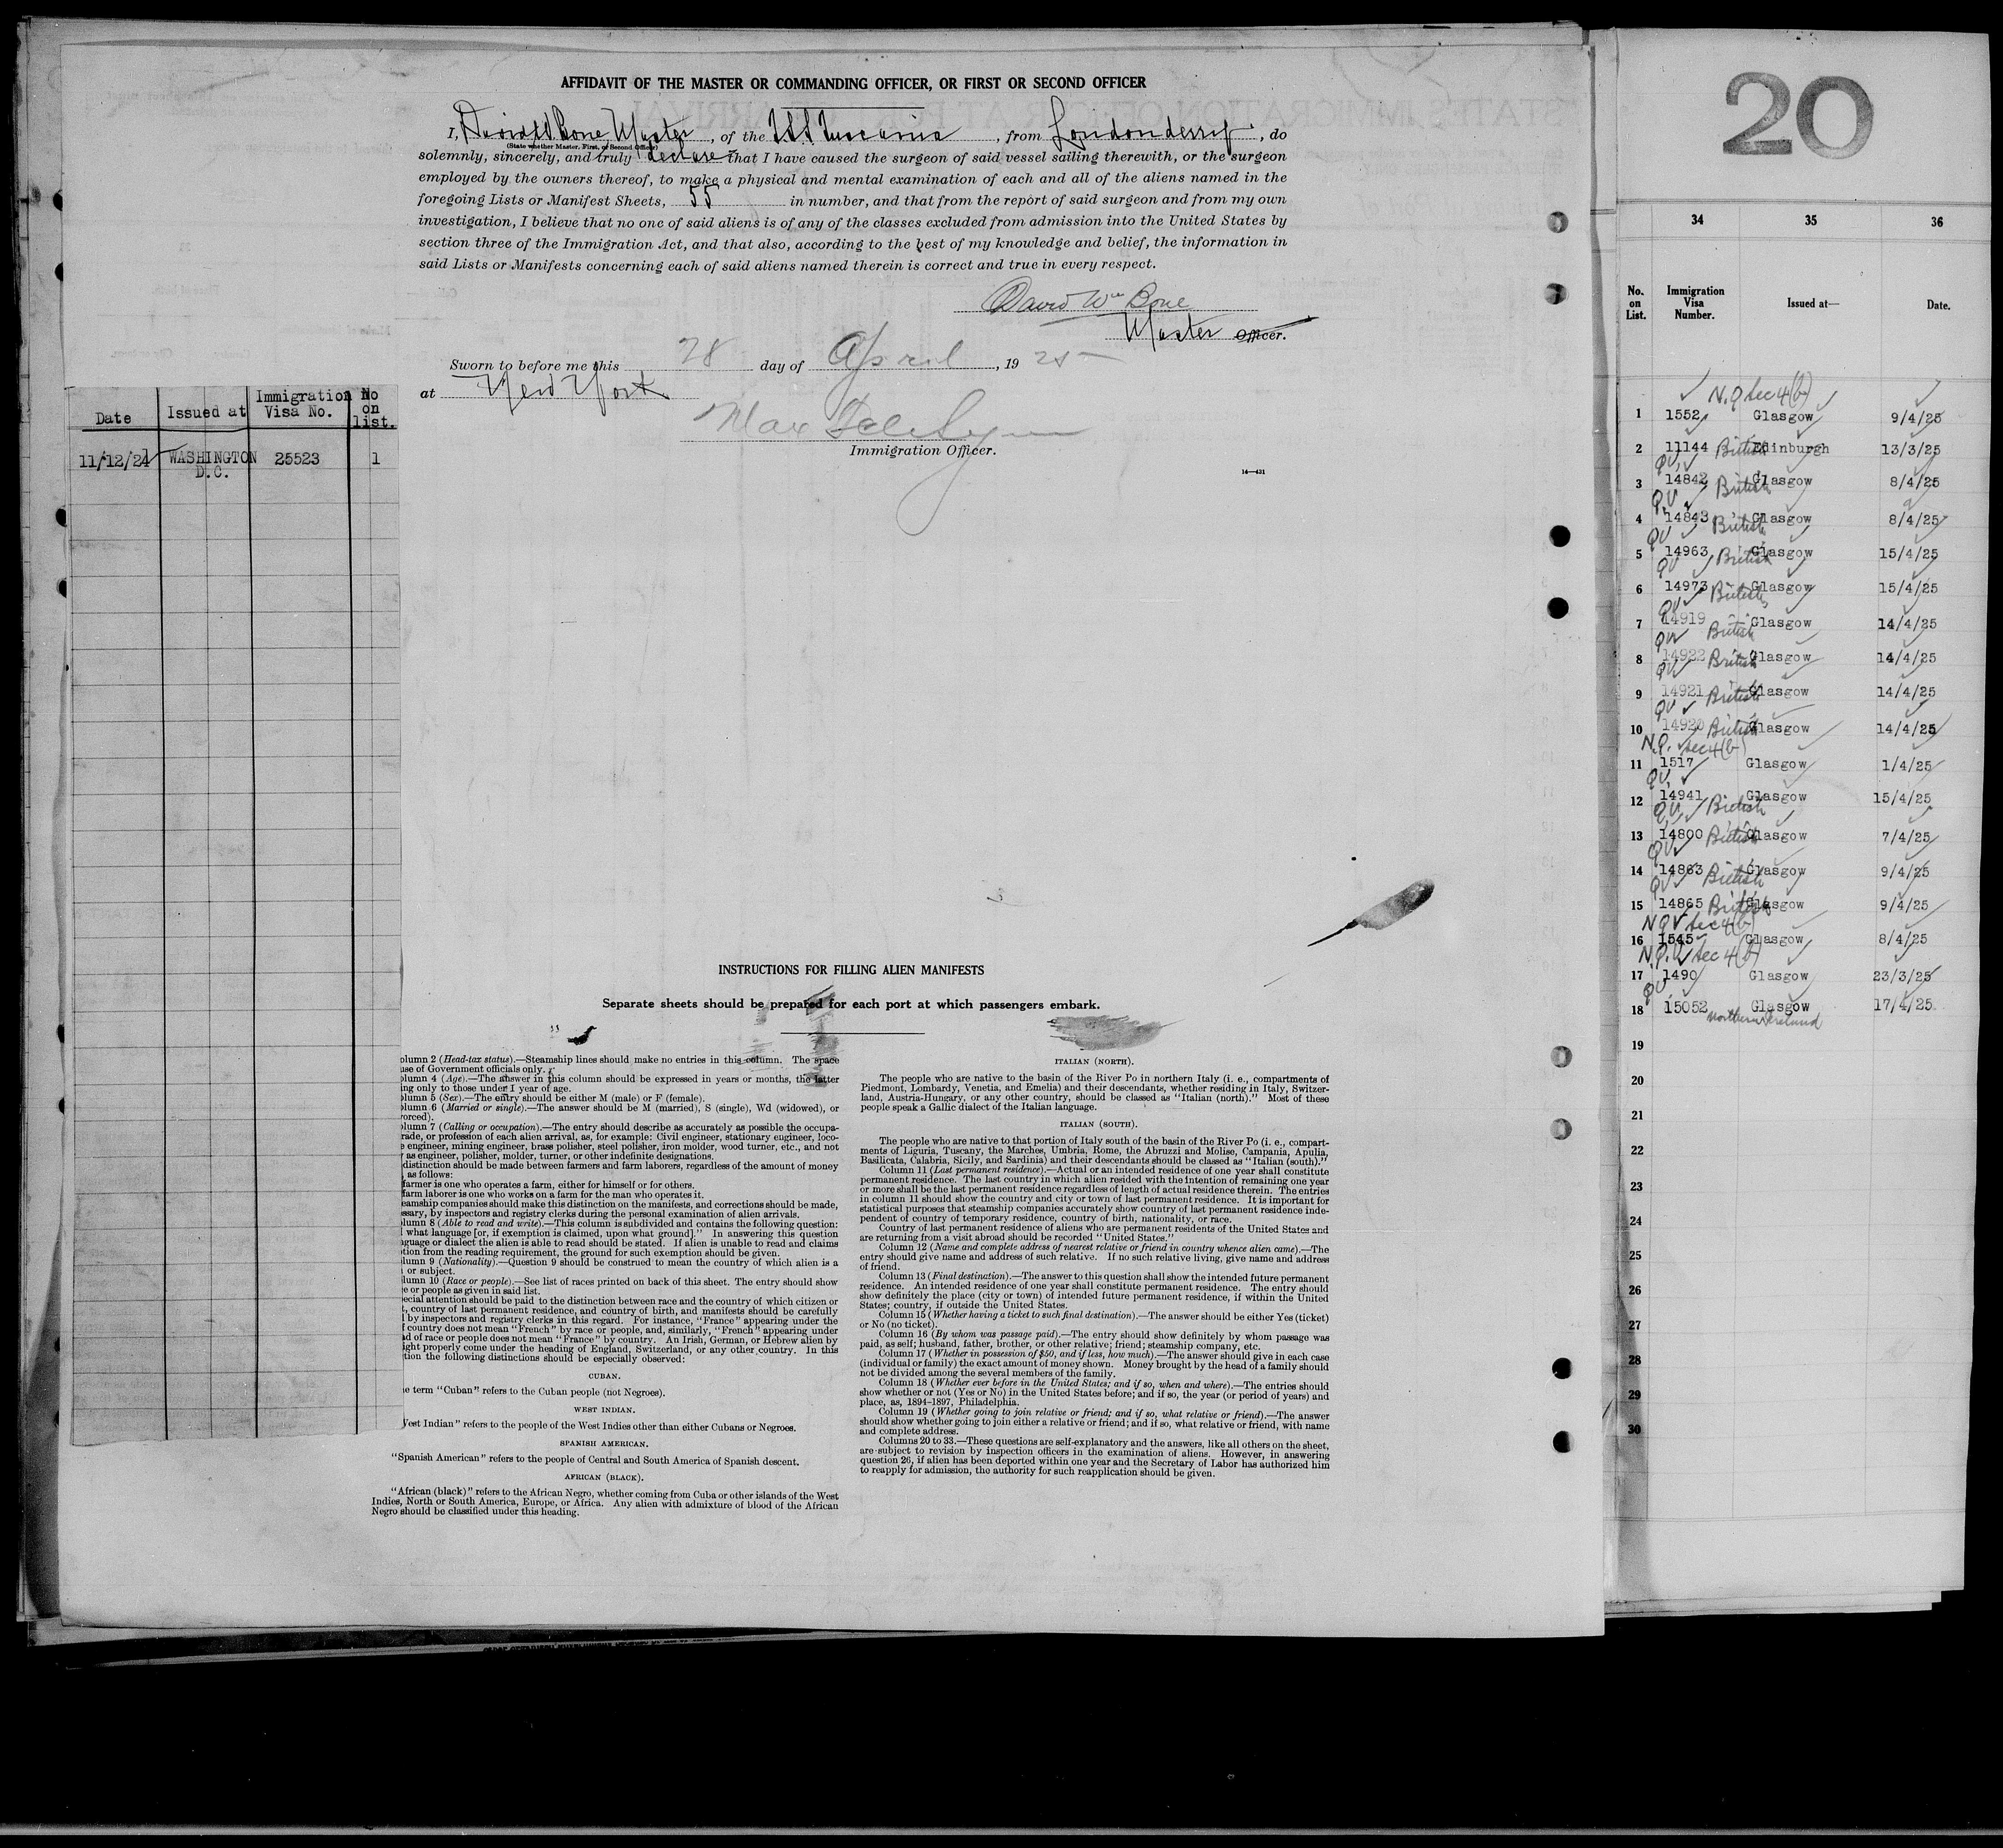 AFFIDAVIT OF THE MASTER OR COMMANDING OFFICER, OR FIRST OR SECOND OFFICER
I, David W. Bone Master, of the TSS Tuscania, from Londonderry, do
(State whether Master, First, or Second Officer)
solemnly, sincerely, and truly declare that I have caused the surgeon of said vessel sailing therewith, or the surgeon
employed by the owners thereof, to make a physical and mental examination of each and all of the aliens named in the
foregoing Lists or Manifest Sheets, 55 in number, and that from the report of said surgeon and from my own
investigation, I believe that no one of said aliens is of any of the classes excluded from admission into the United States by
section three of the Immigration Act, and that also, according to the best of my knowledge and belief, the information in
said Lists or Manifests concerning each of said aliens named therein is correct and true in every respect.
David Wm Bone
Master Officer.
Sworn to before me this 28 day of April, 1925
at New York
Max
Immigration Officer.
14—431
Date Issued at Immigration Visa No. No on list.
11/12/24 WASHINGTON D.C. 25523 1
INSTRUCTIONS FOR FILLING ALIEN MANIFESTS
Separate sheets should be prepared for each port at which passengers embark.
olumn 2 (Head-tax status).—Steamship lines should make no entries in this column. The space
use of Government officials only.
olumn 4 (Age).—The answer in this column should be expressed in years or months, the latter
ing only to those under 1 year of age.
olumn 5 (Sex).—The entry should be either M (male) or F (female).
olumn 6 (Married or single).—The answer should be M (married), S (single), Wd (widowed), or
orced).
olumn 7 (Calling or occupation).—The entry should describe as accurately as possible the occupa-
rade, or profession of each alien arrival, as, for example: Civil engineer, stationary engineer, loco-
e engineer, mining engineer, brass polisher, steel polisher, iron molder, wood turner, etc., and not
as engineer, polisher, molder, turner, or other indefinite designations.
distinction should be made between farmers and farm laborers, regardless of the amount of money
, as follows:
farmer is one who operates a farm, either for himself or for others.
farm laborer is one who works on a farm for the man who operates it.
eamship companies should make this distinction on the manifests, and corrections should be made,
ssary, by inspectors and registry clerks during the personal examination of alien arrivals.
olumn 8 (Able to read and write).—This column is subdivided and contains the following question:
l what language [or, if exemption is claimed, upon what ground]." In answering this question
nguage or dialect the alien is able to read should be stated. If alien is unable to read and claims
tion from the reading requirement, the ground for such exemption should be given.
olumn 9 (Nationality).—Question 9 should be construed to mean the country of which alien is a
or subject.
olumn 10 (Race or people).—See list of races printed on back of this sheet. The entry should show
e or people as given in said list.
pecial attention should be paid to the distinction between race and the country of which citizen or
t, country of last permanent residence, and country of birth, and manifests should be carefully
l by inspectors and registry clerks in this regard. For instance, "France" appearing under the
f country does not mean "French" by race or people, and, similarly, "French" appearing under
ad of race or people does not mean "France" by country. An Irish, German, or Hebrew alien by
ight properly come under the heading of England, Switzerland, or any other country. In this
tion the following distinctions should be especially observed:
CUBAN.
e term "Cuban" refers to the Cuban people (not Negroes).
WEST INDIAN.
West Indian" refers to the people of the West Indies other than either Cubans or Negroes.
SPANISH AMERICAN.
"Spanish American" refers to the people of Central and South America of Spanish descent.
AFRICAN (BLACK).
"African (black)" refers to the African Negro, whether coming from Cuba or other islands of the West
Indies, North or South America, Europe, or Africa. Any alien with admixture of blood of the African
Negro should be classified under this heading.
ITALIAN (NORTH).
The people who are native to the basin of the River Po in northern Italy (i. e., compartments of
Piedmont, Lombardy, Venetia, and Emelia) and their descendants, whether residing in Italy, Switzer-
land, Austria-Hungary, or any other country, should be classed as "Italian (north)." Most of these
people speak a Gallic dialect of the Italian language.
ITALIAN (SOUTH).
The people who are native to that portion of Italy south of the basin of the River Po (i. e., compart-
ments of Liguria, Tuscany, the Marches, Umbria, Rome, the Abruzzi and Molise, Campania, Apulia,
Basilicata, Calabria, Sicily, and Sardinia) and their descendants should be classed as "Italian (south)."
Column 11 (Last permanent residence).—Actual or an intended residence of one year shall constitute
permanent residence. The last country in which alien resided with the intention of remaining one year
or more shall be the last permanent residence regardless of length of actual residence therein. The entries
in column 11 should show the country and city or town of last permanent residence. It is important for
statistical purposes that steamship companies accurately show country of last permanent residence inde-
pendent of country of temporary residence, country of birth, nationality, or race.
Country of last permanent residence of aliens who are permanent residents of the United States and
are returning from a visit abroad should be recorded "United States."
Column 12 (Name and complete address of nearest relative or friend in country whence alien came).—The
entry should give name and address of such relative. If no such relative living, give name and address
of friend.
Column 13 (Final destination).—The answer to this question shall show the intended future permanent
residence. An intended residence of one year shall constitute permanent residence. The entry should
show definitely the place (city or town) of intended future permanent residence, if within the United
States; country, if outside the United States.
Column 15 (Whether having a ticket to such final destination).—The answer should be either Yes (ticket)
or No (no ticket).
Column 16 (By whom was passage paid).—The entry should show definitely by whom passage was
paid, as self; husband, father, brother, or other relative; friend; steamship company, etc.
Column 17 (Whether in possession of $50, and if less, how much).—The answer should give in each case
(individual or family) the exact amount of money shown. Money brought by the head of a family should
not be divided among the several members of the family.
Column 18 (Whether ever before in the United States; and if so, when and where).—The entries should
show whether or not (Yes or No) in the United States before; and if so, the year (or period of years) and
place, as, 1894-1897, Philadelphia.
Column 19 (Whether going to join relative or friend; and if so, what relative or friend).—The answer
should show whether going to join either a relative or friend; and if so, what relative or friend, with name
and complete address.
Columns 20 to 33.—These questions are self-explanatory and the answers, like all others on the sheet,
are subject to revision by inspection officers in the examination of aliens. However, in answering
question 26, if alien has been deported within one year and the Secretary of Labor has authorized him
to reapply for admission, the authority for such reapplication should be given.
20
34 35 36
No. on List. Immigration Visa Number. Issued at— Date.
N.Q sec 4(b)
1 1552 Glasgow 9/4/25
2 11144 British Edinburgh 13/3/25
QV
3 14842 British Glasgow 8/4/25
QV
4 14843 British Glasgow 8/4/25
QV
5 14963 British Glasgow 15/4/25
QV
6 14973 British Glasgow 15/4/25
QV
7 14919 British Glasgow 14/4/25
QV
8 14922 British Glasgow 14/4/25
QV
9 14921 British Glasgow 14/4/25
QV
10 14920 British Glasgow 14/4/25
N.Q. sec 4(b)
11 1517 Glasgow 1/4/25
QV
12 14941 British Glasgow 15/4/25
QV
13 14800 British Glasgow 7/4/25
QV
14 14863 British Glasgow 9/4/25
QV
15 14865 British Glasgow 9/4/25
NQV sec 4(b)
16 1545 Glasgow 8/4/25
N.Q.V sec 4(b)
17 1490 Glasgow 23/3/25
QV
18 15052 Glasgow 17/4/25
Northern Ireland
19
20
21
22
23
24
25
26
27
28
29
30